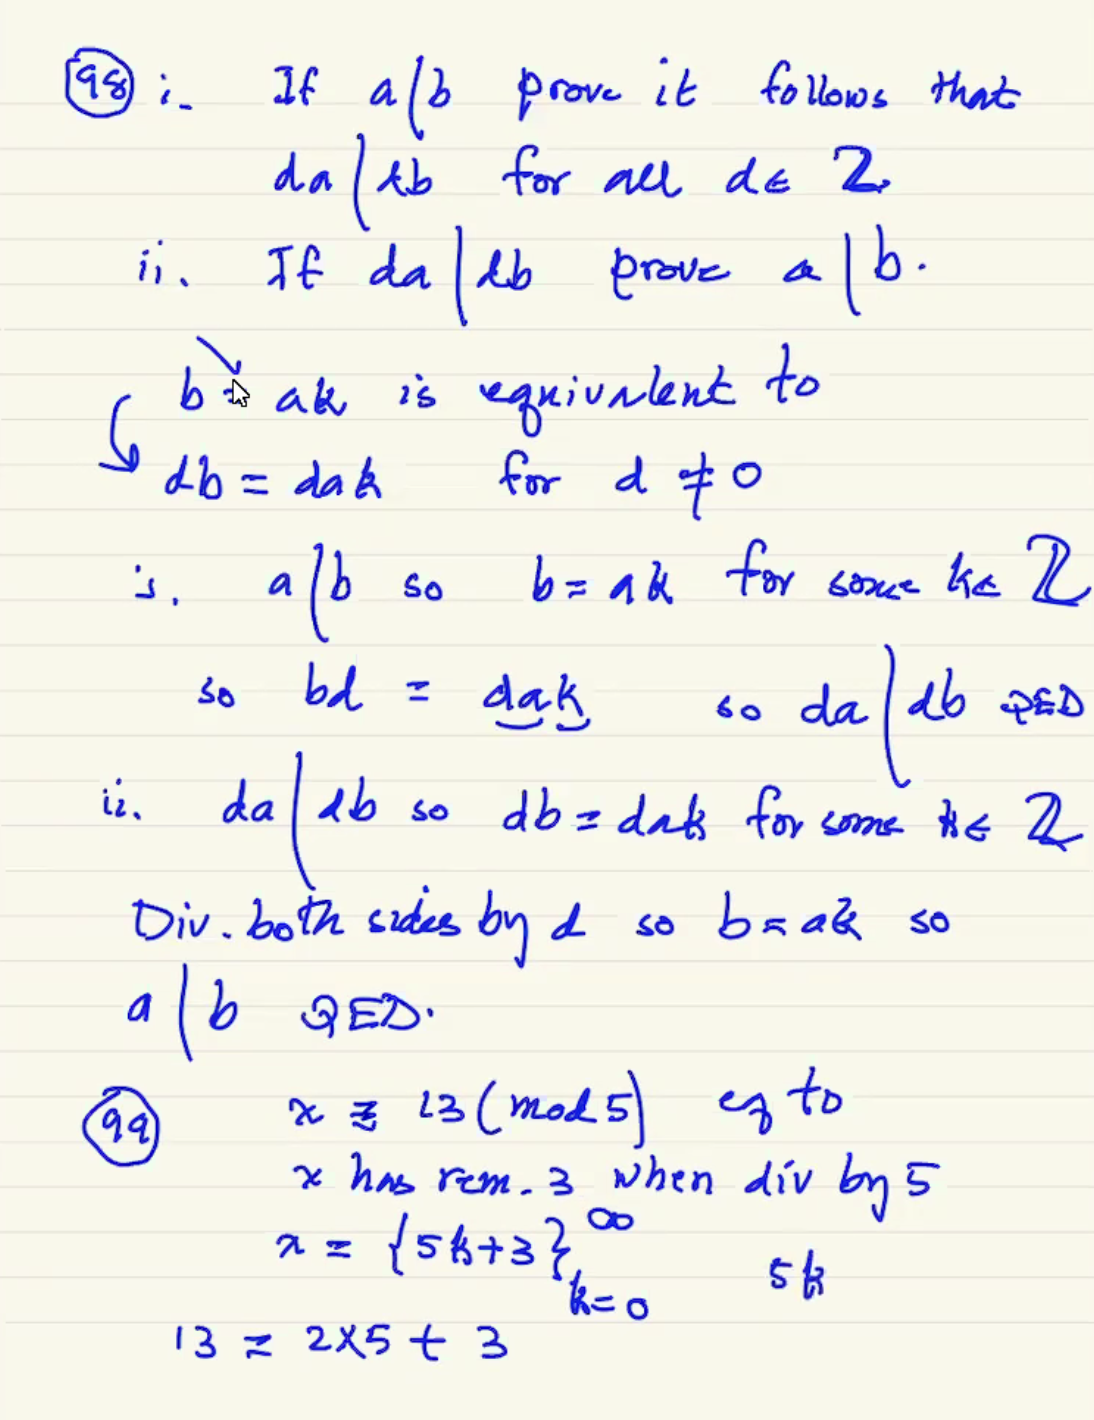 98 i. If a|b prove it follows that
da|db for all d∈ ℤ.
ii. If da|db prove a|b.
b = ak is equivalent to
db = dak for d ≠ 0
i. a|b so b = ak for some k∈ ℤ
so bd = dak so da|db QED
ii. da|db so db = dak for some k∈ ℤ
Div. both sides by d so b = ak so
a|b QED.
99 x ≡ 13 (mod 5) eq to
x has rem. 3 when div by 5
x = {5k+3}^∞_{k=0} 5k
13 = 2×5 + 3